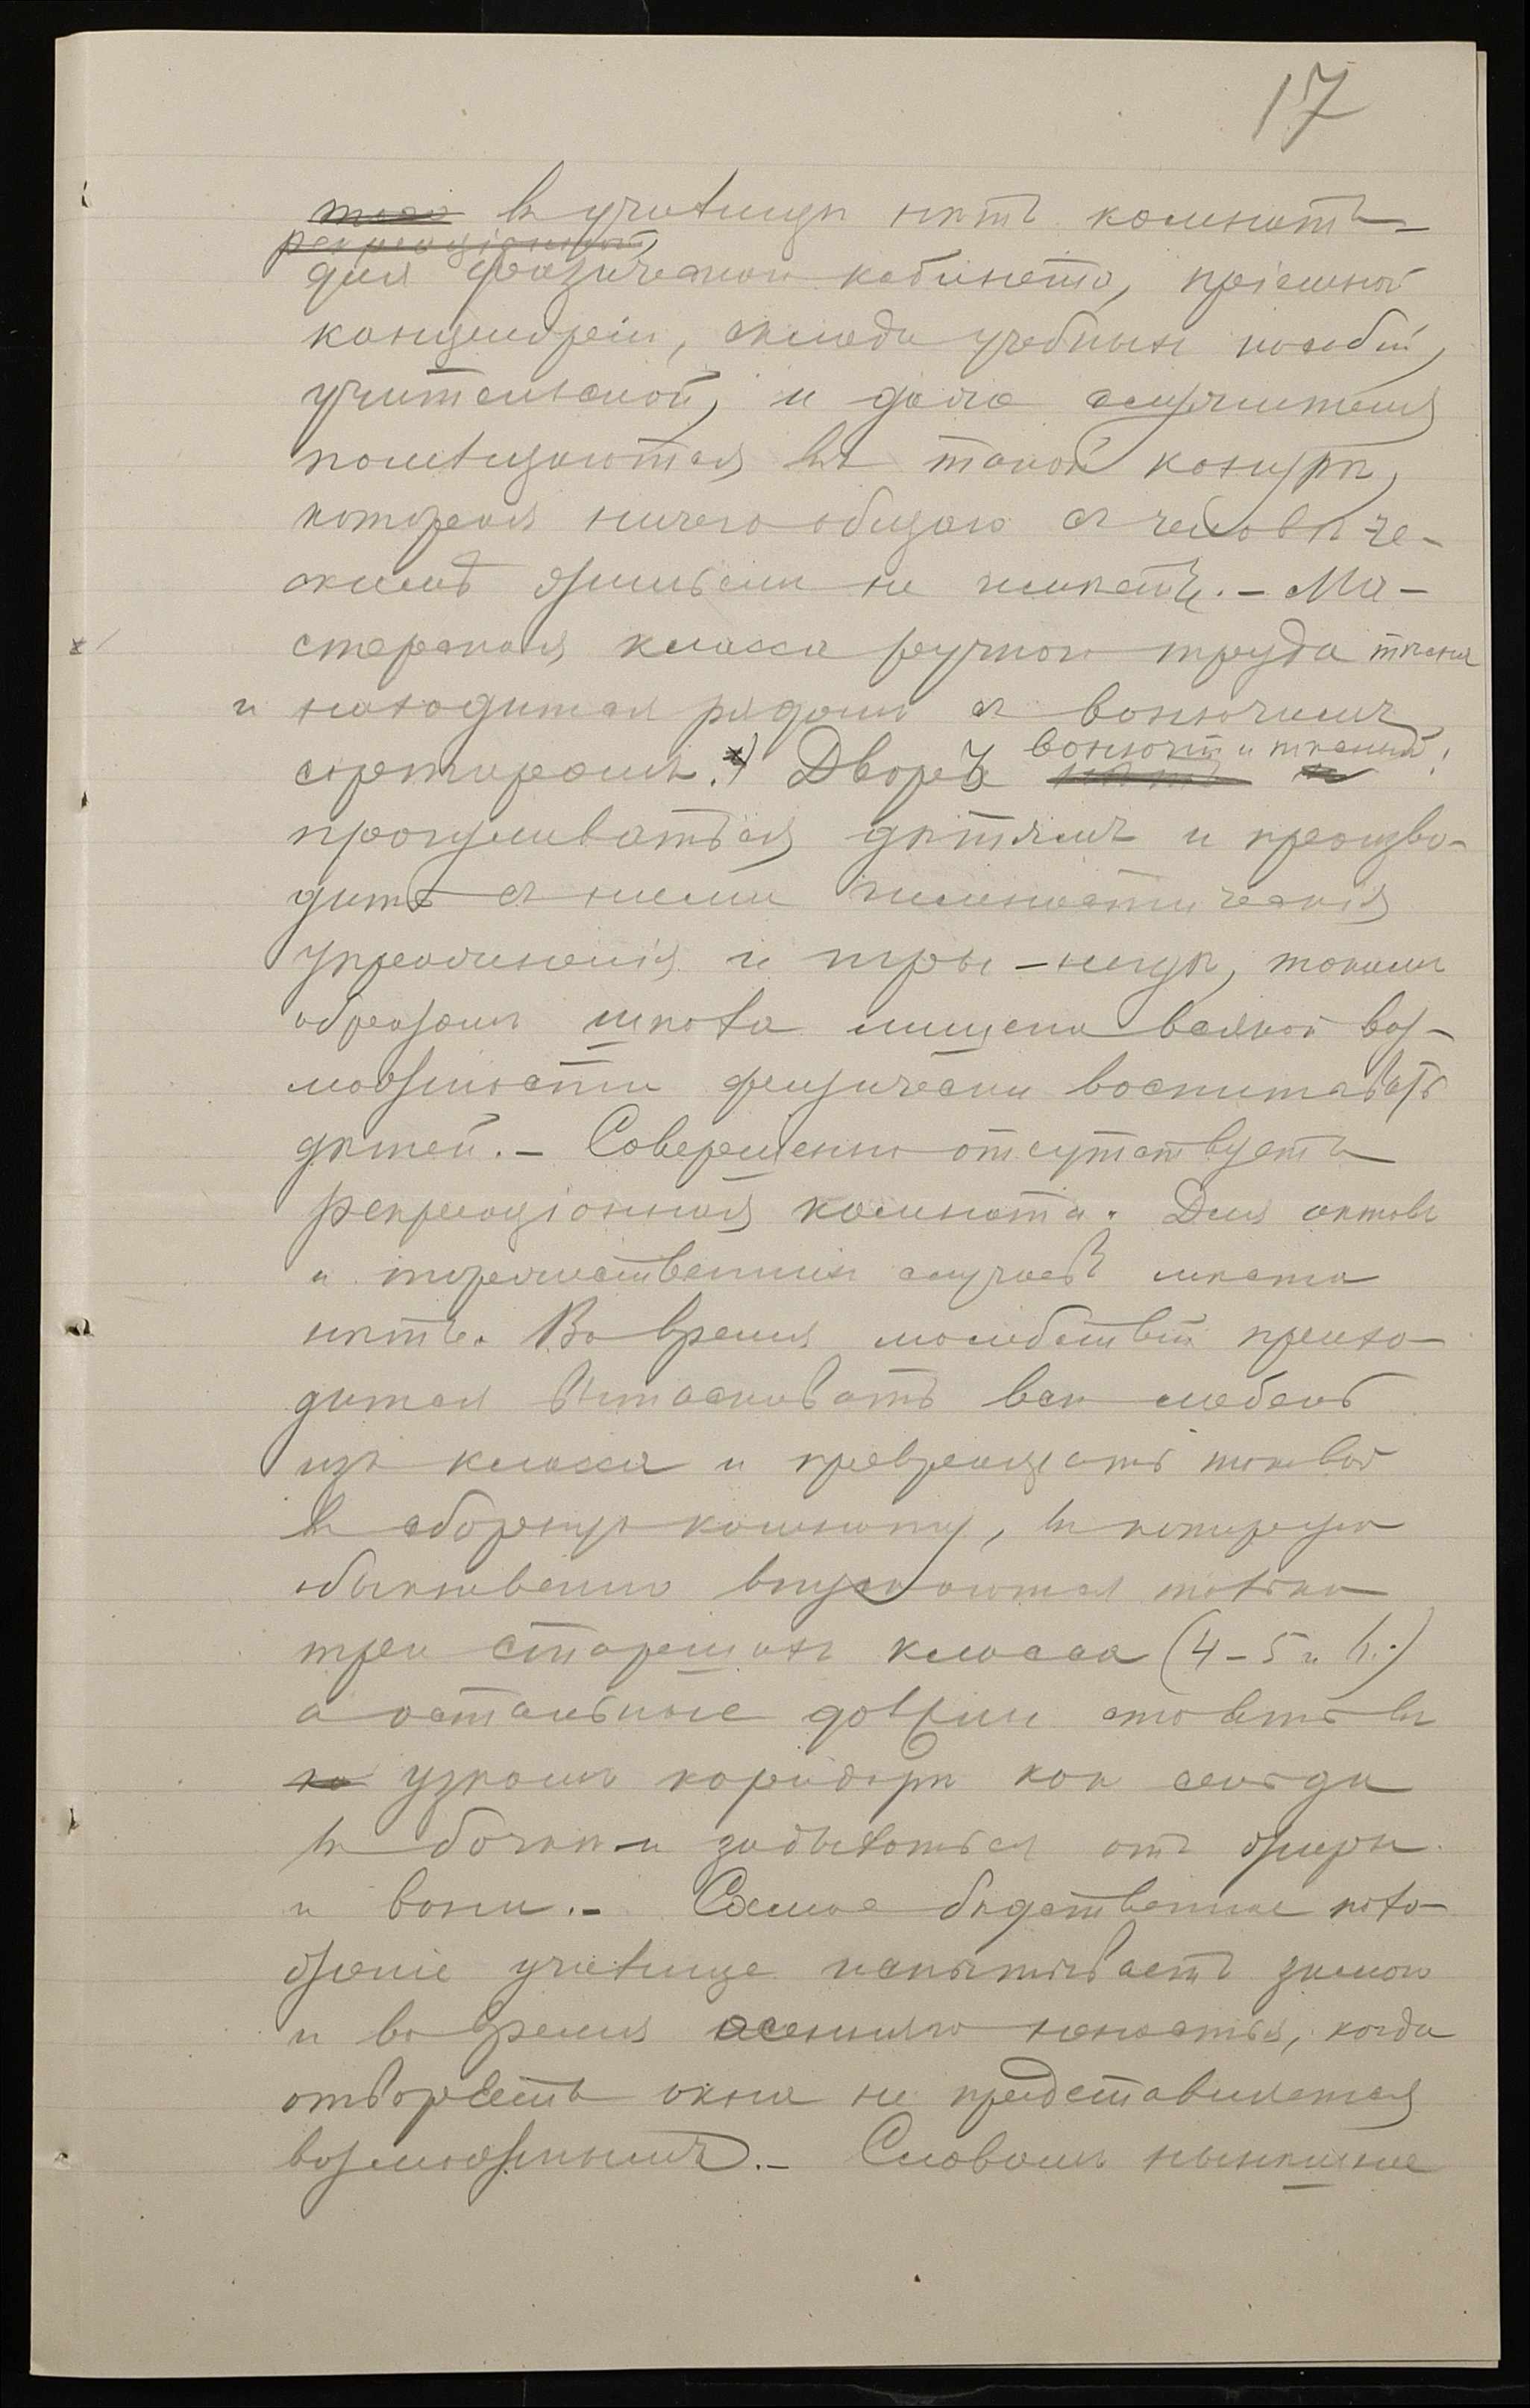 17
въ училищѣ нѣтъ комнатъ
рекреаціонной,
для физическаго кабинета, пріемной
канцеляріи, склада учебныхъ пособій,
учительской, и даже служителя
помѣщаются въ такой конурѣ,
которая ничего общаго съ человѣче-
скимъ жильемъ не имѣетъ. – Ма-
стерская класса ручного труда тѣсна
и находится рядомъ съ вонючимъ
сортиромъ. Дворъ вонючій и тѣсный;
прогуливаться дѣтямъ и произво-
дить съ ними гимнастическія
упражненія и игры – негдѣ, такимъ
образомъ школа лишена всякой воз-
можности физически воспитывать
дѣтей. – Совершенно отсутствуетъ
рекреаціонная комната. Для актовъ
и торжественныхъ случаевъ мѣста
нѣтъ. Во время молебствій прихо-
дится вытаскивать всю мебель
изъ класса и превращать таковой
въ сборную комнату, въ которую
обыкновенно впускаются только
три старшихъ класса (4 – 5 и
а остальные должны стоять въ
узкомъ коридорѣ какъ сельди
въ бочкѣ и задыхаться отъ жары
и вони. – Самое бѣдственное поло-
женіе училище испытываетъ зимою
и во время осенняго ненастья, когда
отворять окна не представляется
возможнымъ. – Словомъ нынѣшнее